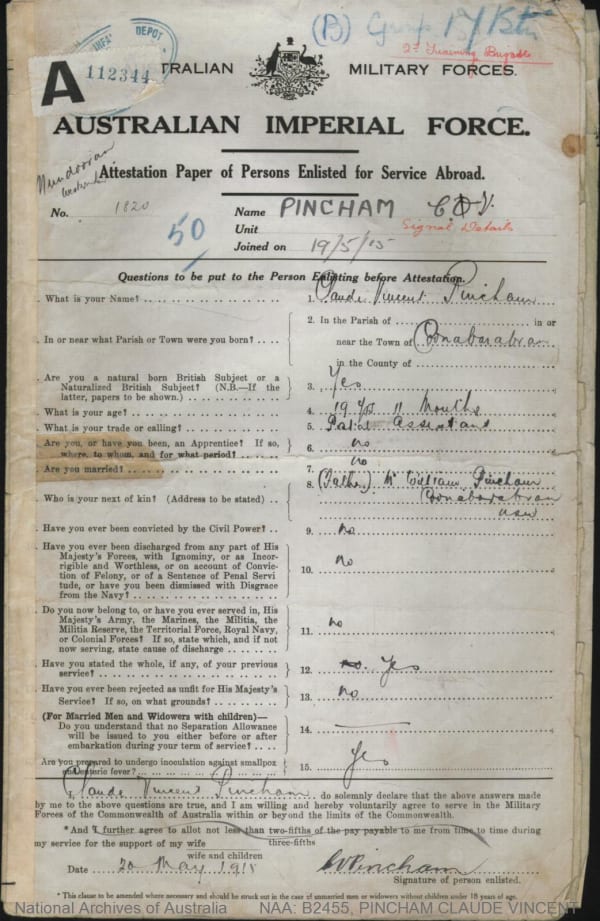 (B) Group 15/15th
2nd Training Brigade
DEPOT
A
112344
TRALIAN MILITARY FORCES.
AUSTRALIAN IMPERIAL FORCE.
Attestation Paper of Persons Enlisted for Service Abroad.
No. 1820
Name PINCHAM C V.
50
Unit Signal Details
Joined on 19/5/15
Questions to be put to the Person Enlisting before Attestation.
. What is your Name? 1. Claude Vincent Pincham
. In or near what Parish or Town were you born?
2. In the Parish of in or
near the Town of Coonabarabran
in the County of
. Are you a natural born British Subject or a
Naturalized British Subject? (N.B.—If the
latter, papers to be shown.)
3. Yes
. What is your age? 4. 19 11 Months
. What is your trade or calling? 5. Postal Assistant
. Are you, or have you been, an Apprentice? If so,
where, to whom, and for what period?
6. no
. Are you married? 7. no
. Who is your next of kin? (Address to be stated)
8. (Father) Mr William Pincham
Coonabarabran
NSW
. Have you ever been convicted by the Civil Power? 9. no
. Have you ever been discharged from any part of His
Majesty's Forces, with Ignominy, or as Incor-
rigible and Worthless, or on account of Convic-
tion of Felony, or of a Sentence of Penal Servi
tude, or have you been dismissed with Disgrace
from the Navy?
10. no
. Do you now belong to, or have you ever served in, His
Majesty's Army, the Marines, the Militia, the
Militia Reserve, the Territorial Force, Royal Navy,
or Colonial Forces? If so, state which, and if not
now serving, state cause of discharge
11. no
. Have you stated the whole, if any, of your previous
service?
12. no. Yes
. Have you ever been rejected as unfit for His Majesty's
Service? If so, on what grounds?
13. no
(For Married Men and Widowers with children)—
Do you understand that no Separation Allowance
will be issued to you either before or after
embarkation during your term of service?
14.
. Are you prepared to undergo inoculation against smallpox
and enteric fever?
15. Yes
Claude Vincent Pincham, do solemnly declare that the above answers made
by me to the above questions are true, and I am willing and hereby voluntarily agree to serve in the Military
Forces of the Commonwealth of Australia within or beyond the limits of the Commonwealth.
*And I further agree to allot not less than two-fifths of the pay payable to me from time to time during
three-fifths
my service for the support of my wife
wife and children
Date 20 May 1915 CVPincham
Signature of person enlisted.
* This clause to be amended where necessary and should be struck out in the case of unmarried men or widowers without children under 18 years of age.
National Archives of Australia NAA: B2455, PINCHAM CLAUDE VINCENT